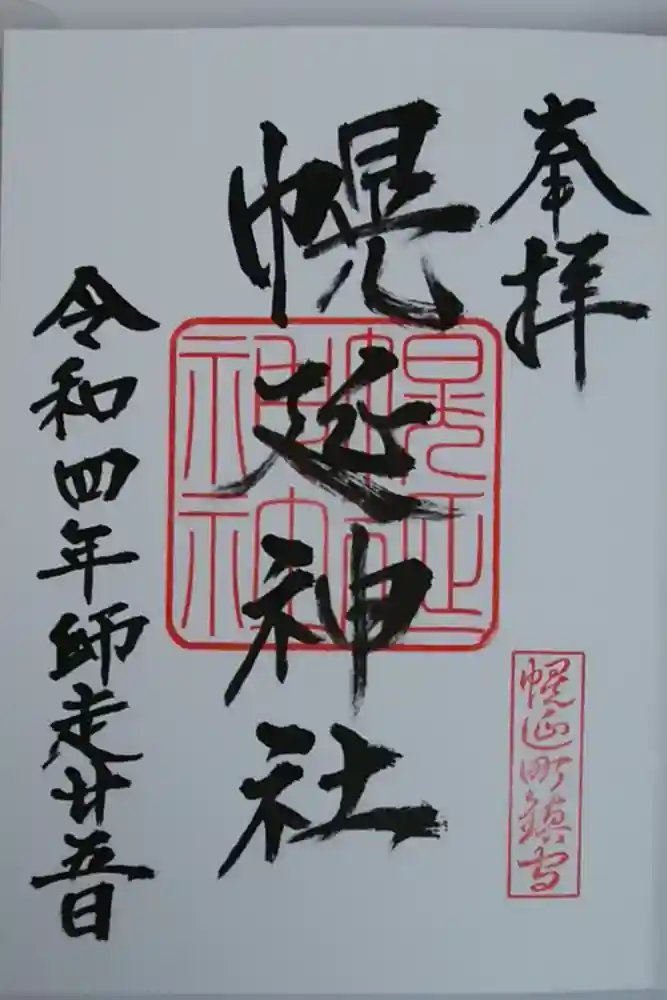 奉拝
幌延神社
令和四年師走廿五日
幌延町鎮守